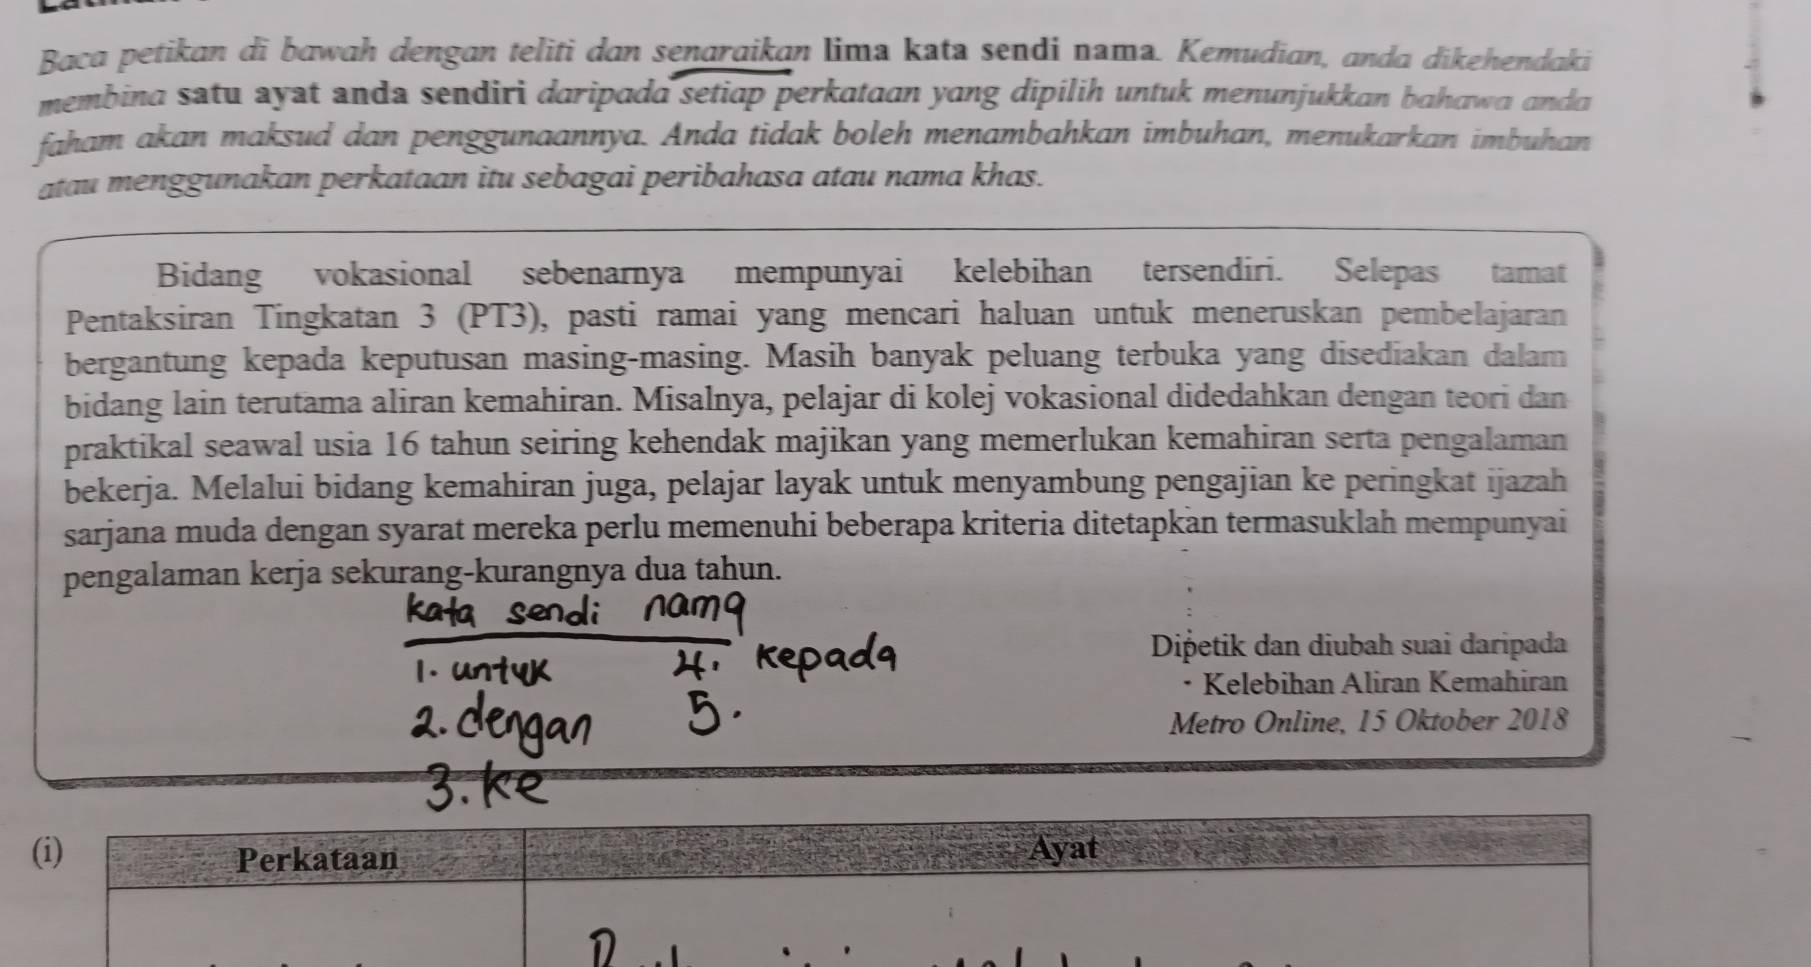 Baca petikan di bawah dengan teliti dan senaraikan lima kata sendi nama. Kemudian, anda dikehendaki
membina satu ayat anda sendiri daripada setiap perkataan yang dipilih untuk menunjukkan bahawa anda
faham akan maksud dan penggunaannya. Anda tidak boleh menambahkan imbuhan, menukarkan imbuhan
atau menggunakan perkataan itu sebagai peribahasa atau nama khas.
Bidang vokasional sebenarnya mempunyai kelebihan tersendiri. Selepas tamat
Pentaksiran Tingkatan 3 (PT3), pasti ramai yang mencari haluan untuk meneruskan pembelajaran
bergantung kepada keputusan masing-masing. Masih banyak peluang terbuka yang disediakan dalam
bidang lain terutama aliran kemahiran. Misalnya, pelajar di kolej vokasional didedahkan dengan teori dan
praktikal seawal usia 16 tahun seiring kehendak majikan yang memerlukan kemahiran serta pengalaman
bekerja. Melalui bidang kemahiran juga, pelajar layak untuk menyambung pengajian ke peringkat ijazah
sarjana muda dengan syarat mereka perlu memenuhi beberapa kriteria ditetapkan termasuklah mempunyai
pengalaman kerja sekurang-kurangnya dua tahun.
kata sendi nama
1. untuk 4. kepada
2. dengan 5.
3. ke
Dipetik dan diubah suai daripada
Kelebihan Aliran Kemahiran
Metro Online, 15 Oktober 2018
(i) Perkataan Ayat